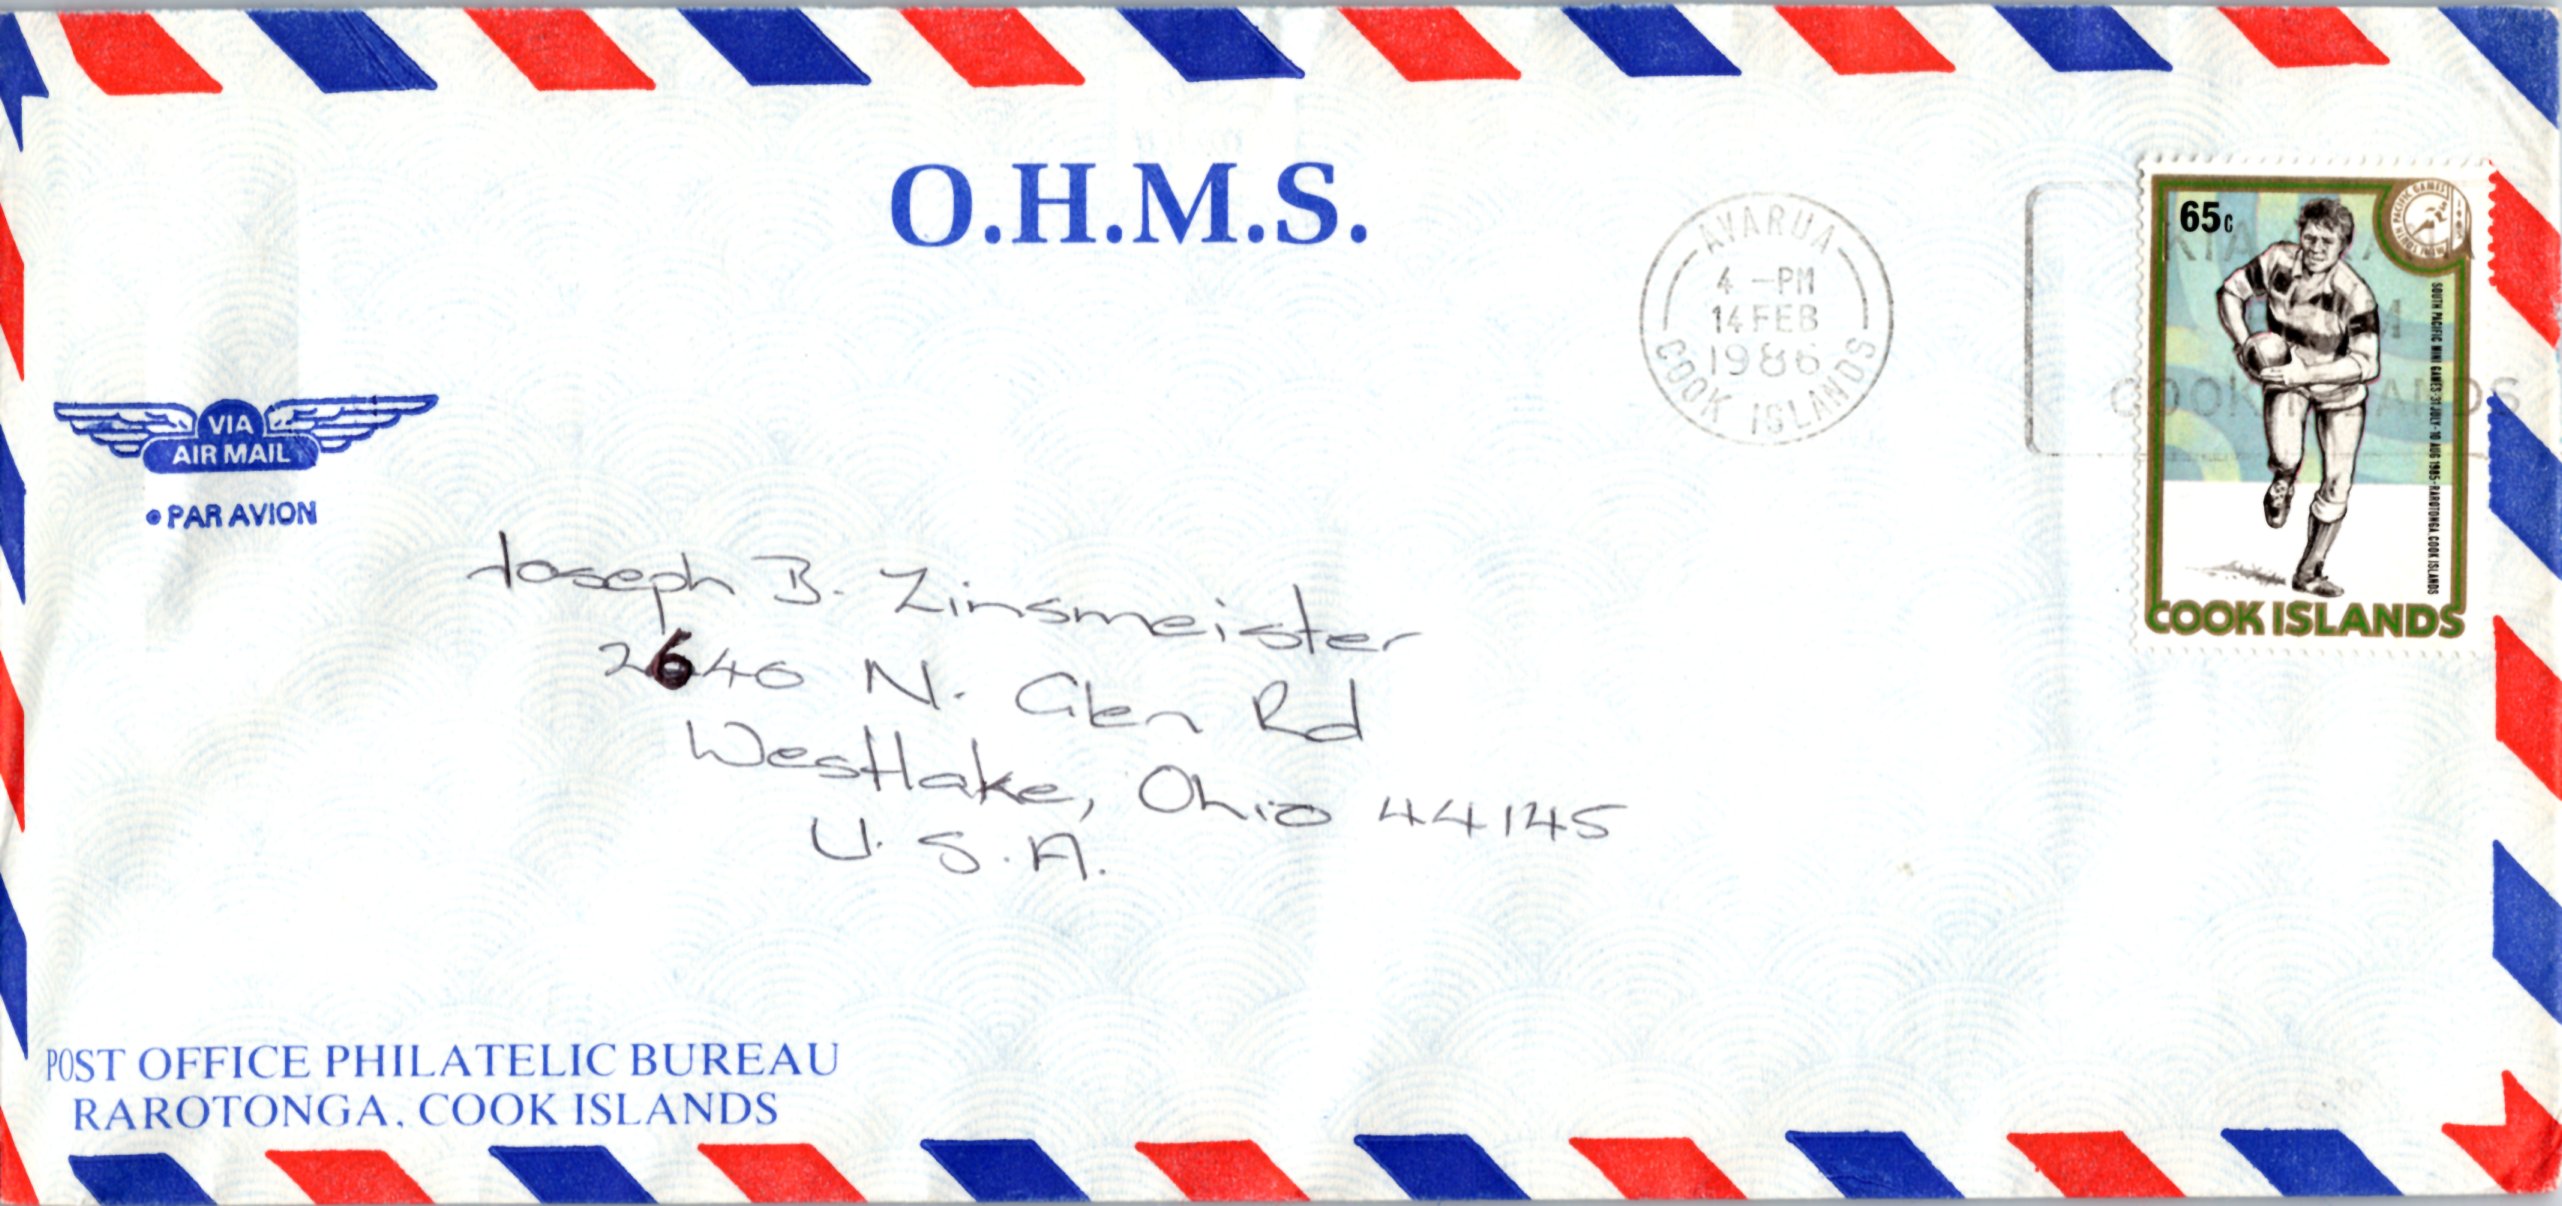 O.H.M.S.
AVARUA
4 -PM
14 FEB
1986
COOK ISLANDS
65c
SOUTH PACIFIC MINI GAMES
SOUTH PACIFIC MINI GAMES·31 JULY-10 AUG 1985-RAROTONGA, COOK ISLANDS
COOK ISLANDS
KIA
COOK ISLANDS
VIA
AIR MAIL
PAR AVION
Joseph B. Zinsmeister
2640 N. Glen Rd
Westlake, Ohio 44145
U.S.A.
POST OFFICE PHILATELIC BUREAU
RAROTONGA, COOK ISLANDS